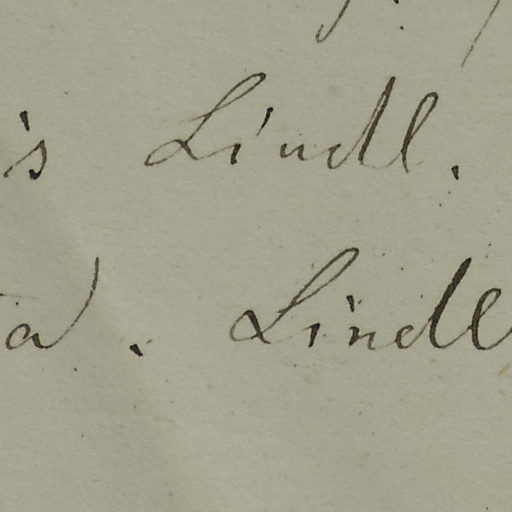 is Lindl.
ad. Lindl